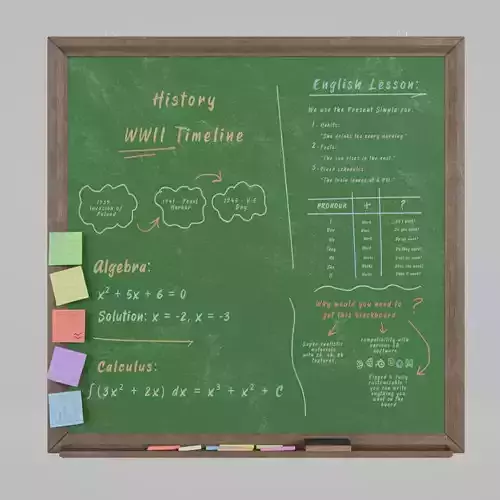 History
WWII Timeline
1939
Invasion of
Poland
1941 - Pearl
Harbor
1945 - V-E
Day
Algebra:
x² + 5x + 6 = 0
Solution: x = -2, x = -3
Calculus:
∫(3x² + 2x) dx = x³ + x² + C
English Lesson:
We use the Present Simple for:
1. Habits:
"She drinks tea every morning."
2. Facts:
"The sun rises in the east."
3. Fixed schedules:
"The train leaves at 6 PM."
PRONOUN + ?
I
You
We
They
He
She
It
Why would you need to
get this blackboard ?
Super realistic
materials
with 2K, 4K, 8K
textures.
compatibility with
various 3D
software.
Rigged & fully
customizable
you can write
anything you
want on the
board